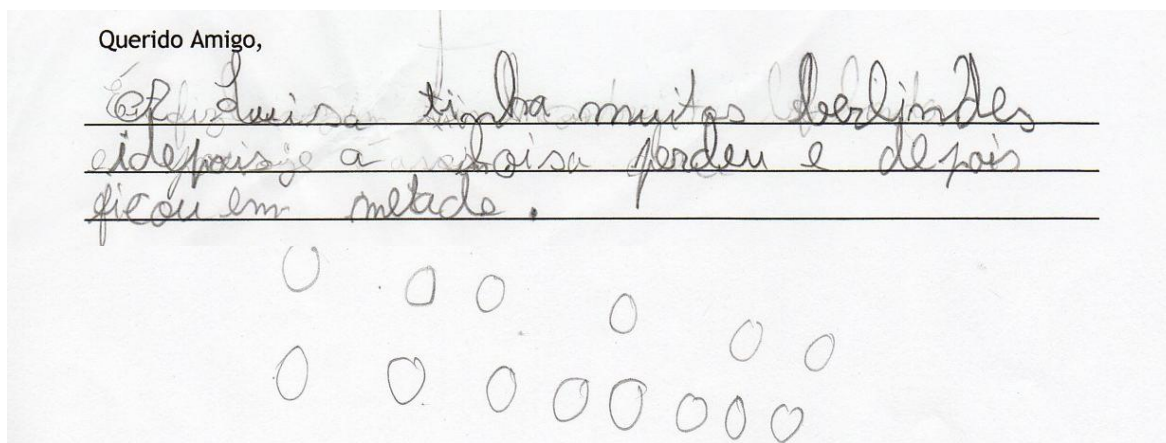 Querido Amigo,
A Luisa tinha muitos berlindes
idepois a loisa perdeu e depois
ficou em metade.